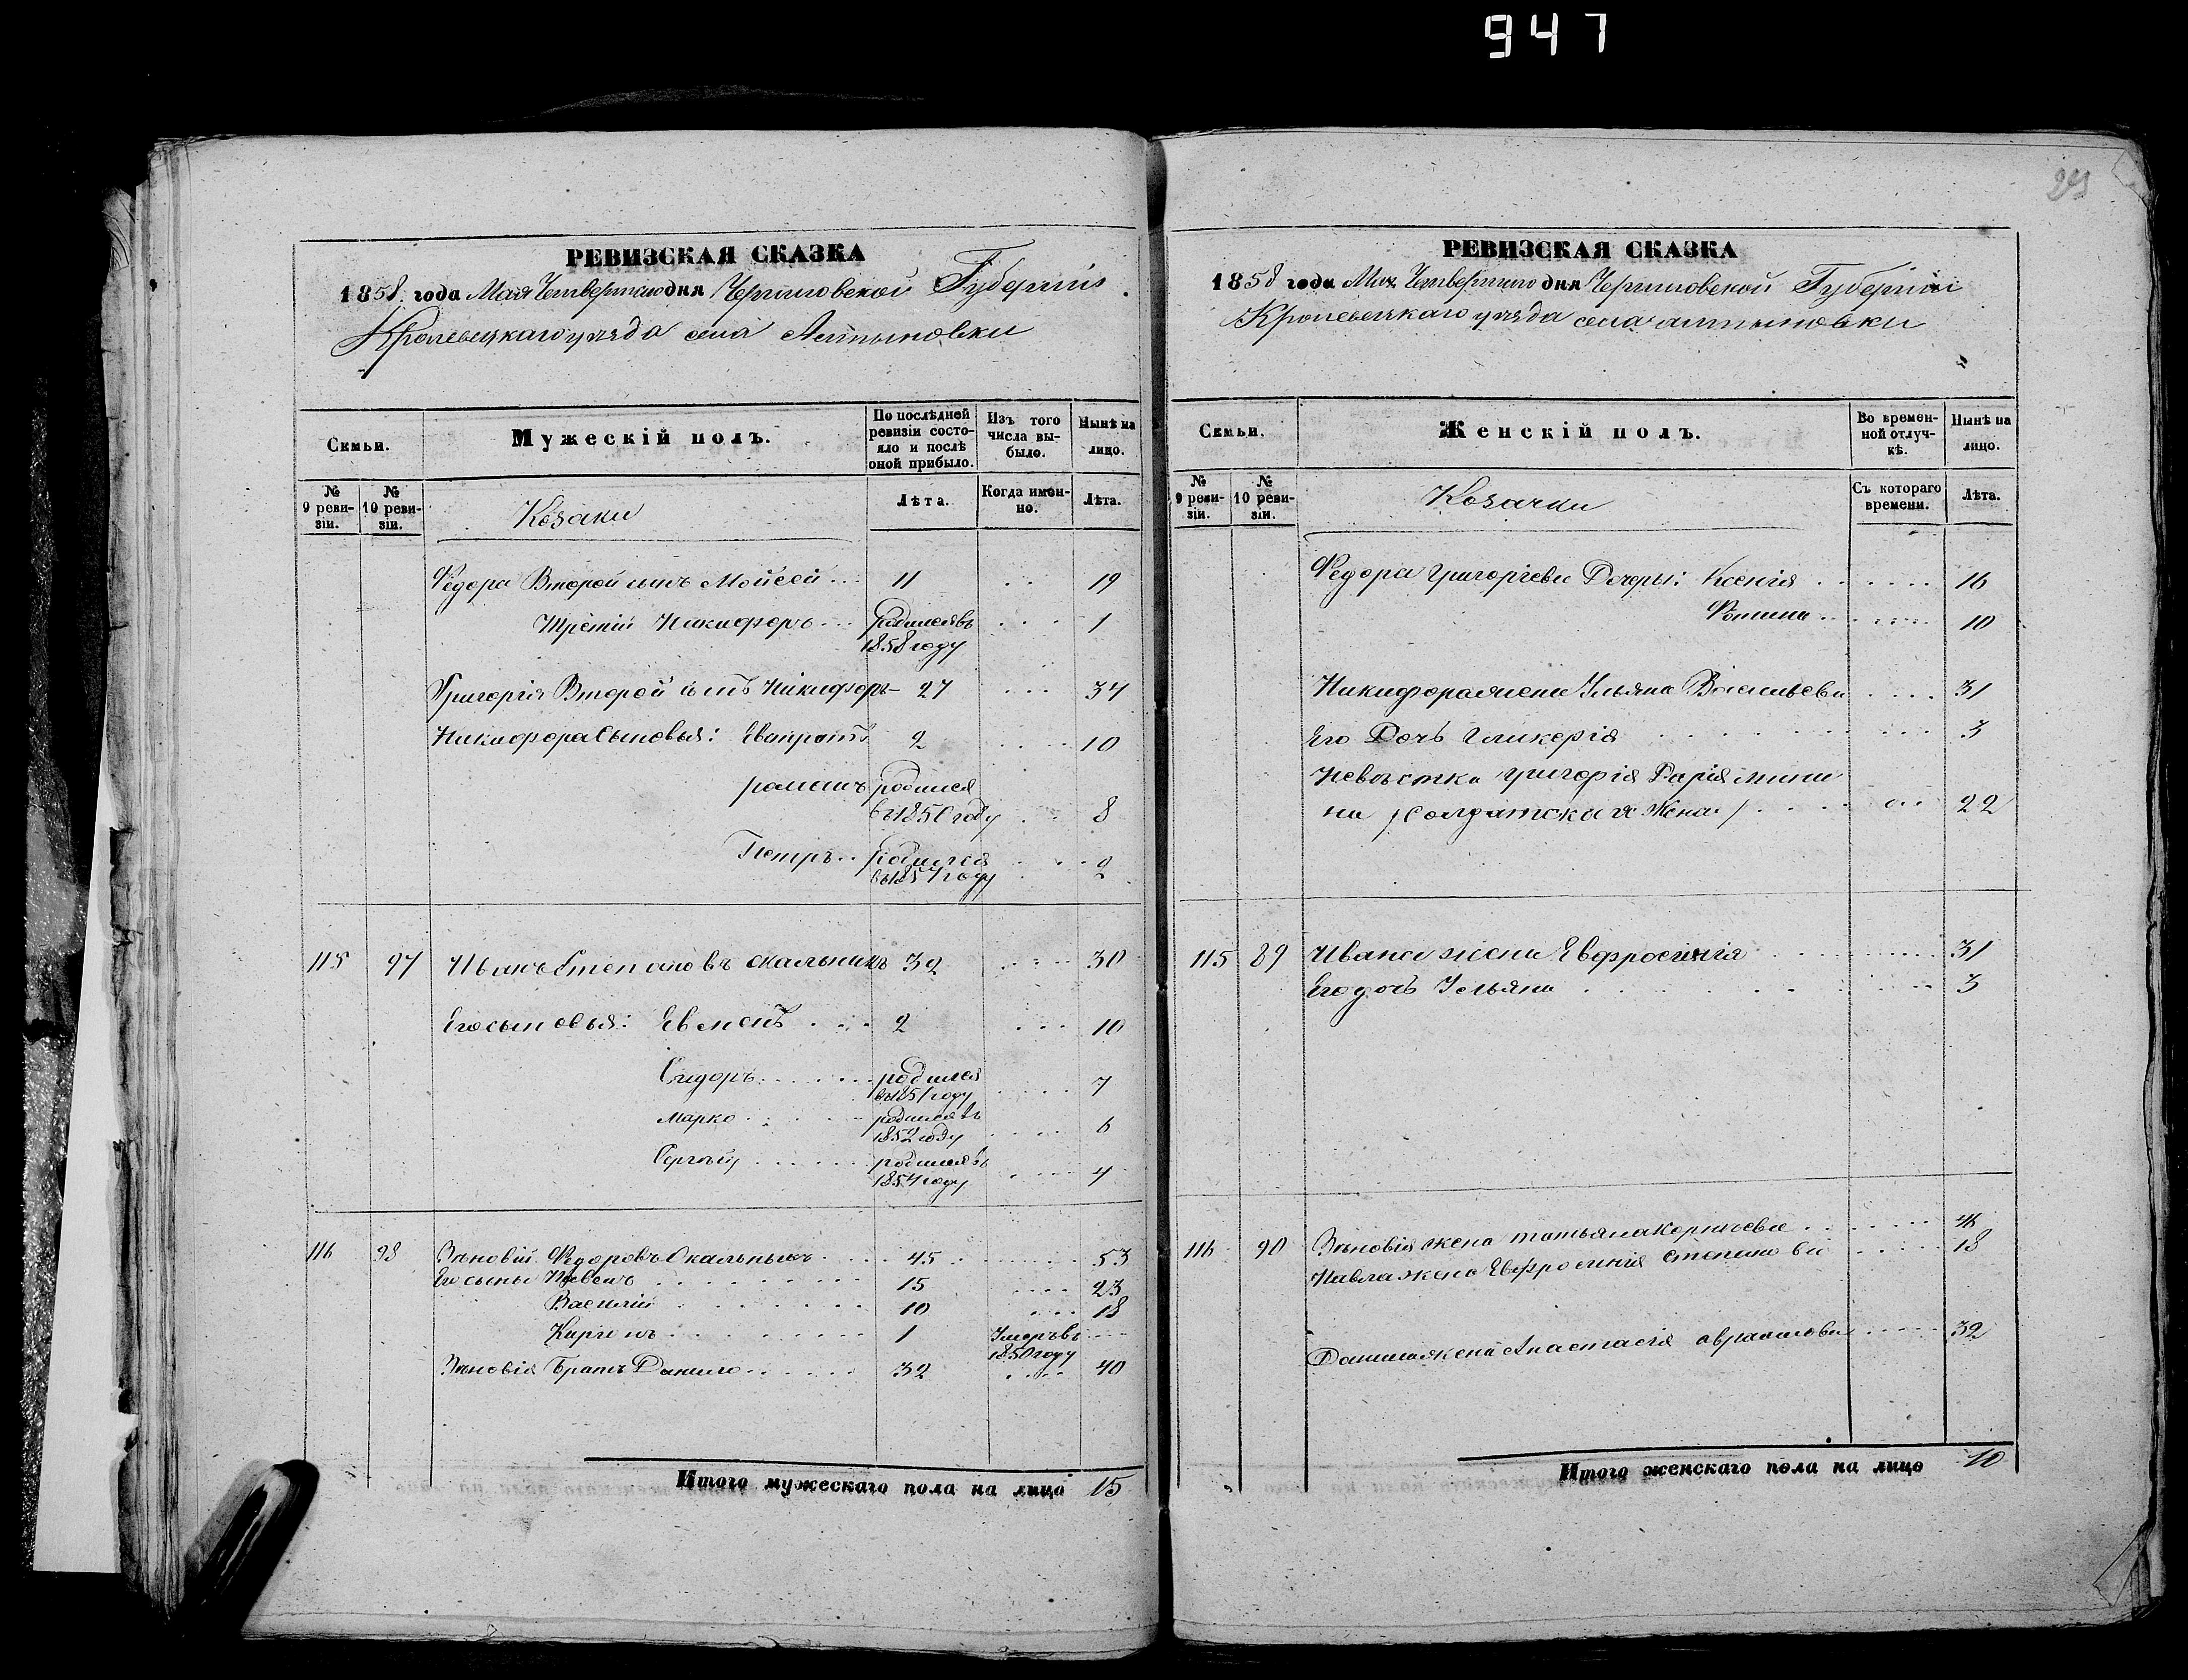 947
РЕВИЗСКАЯ СКАЗКА
1858 года Мая Четвертаго дня Черниговской Губерніи
Кролевецкаго уезда села Алтыновки
Семьи.
Мужескій полъ.
По послѣдней ревизіи состояло и послѣ оной прибыло.
Изъ того числа выбыло.
Нынѣ на лицо.
№ 9 ревизіи.
№ 10 ревизіи.
Козаки
Лѣта.
Когда именно.
Лѣта.
Федора Второй сынъ Мойсей 11 19
Третій Никифоръ родился въ 1
1858 году
Григорія Второй сынъ Никифоръ 27 34
Никифора Сыновья: Евпратъ 2 10
романъ родился
въ 1850 году 8
Петръ родился 2
въ 1857 году
115 97 Иванъ Степановъ Скальникъ 32 30
Его сыновья: Евменъ 2 10
Сидоръ родился 7
въ 1851 году
Марко родился въ 6
1852 году
Сергѣй родился въ 4
1854 году
116 98 Зѣновій Федоровъ Скальныкъ 45 53
Его сыны Павелъ 15 23
Василій 10 18
1 Умеръ въ
1850 году
Зѣновія Братъ Данило 32 40
Итого мужескаго пола на лицо 15
РЕВИЗСКАЯ СКАЗКА
1858 года Мая Четвертаго дня Черниговской Губерніи
Кролевецкаго уезда села алтыновки
Семьи.
Женскій полъ.
Во временной отлучкѣ.
Нынѣ на лицо.
№ 9 ревизіи.
№ 10 ревизіи.
Козачки
Съ котораго времени.
Лѣта.
Федора Григоріева Дочеры: Ксенія 16
Фотина 10
Никифора жена Ульяна Васильева 31
Его Дочь Гликерія 3
Невѣстка григорія Дарія мини
на /Солдатская Жена/ 22
115 89 Ивана жена Евфросинія 31
Его дочь Ульяна 3
116 90 Зѣновія жена татьяна Корнѣева
Павла жена Евфросинія степанова 18
Данила жена Анастасія авраамова 32
Итого женскаго пола на лицо 10